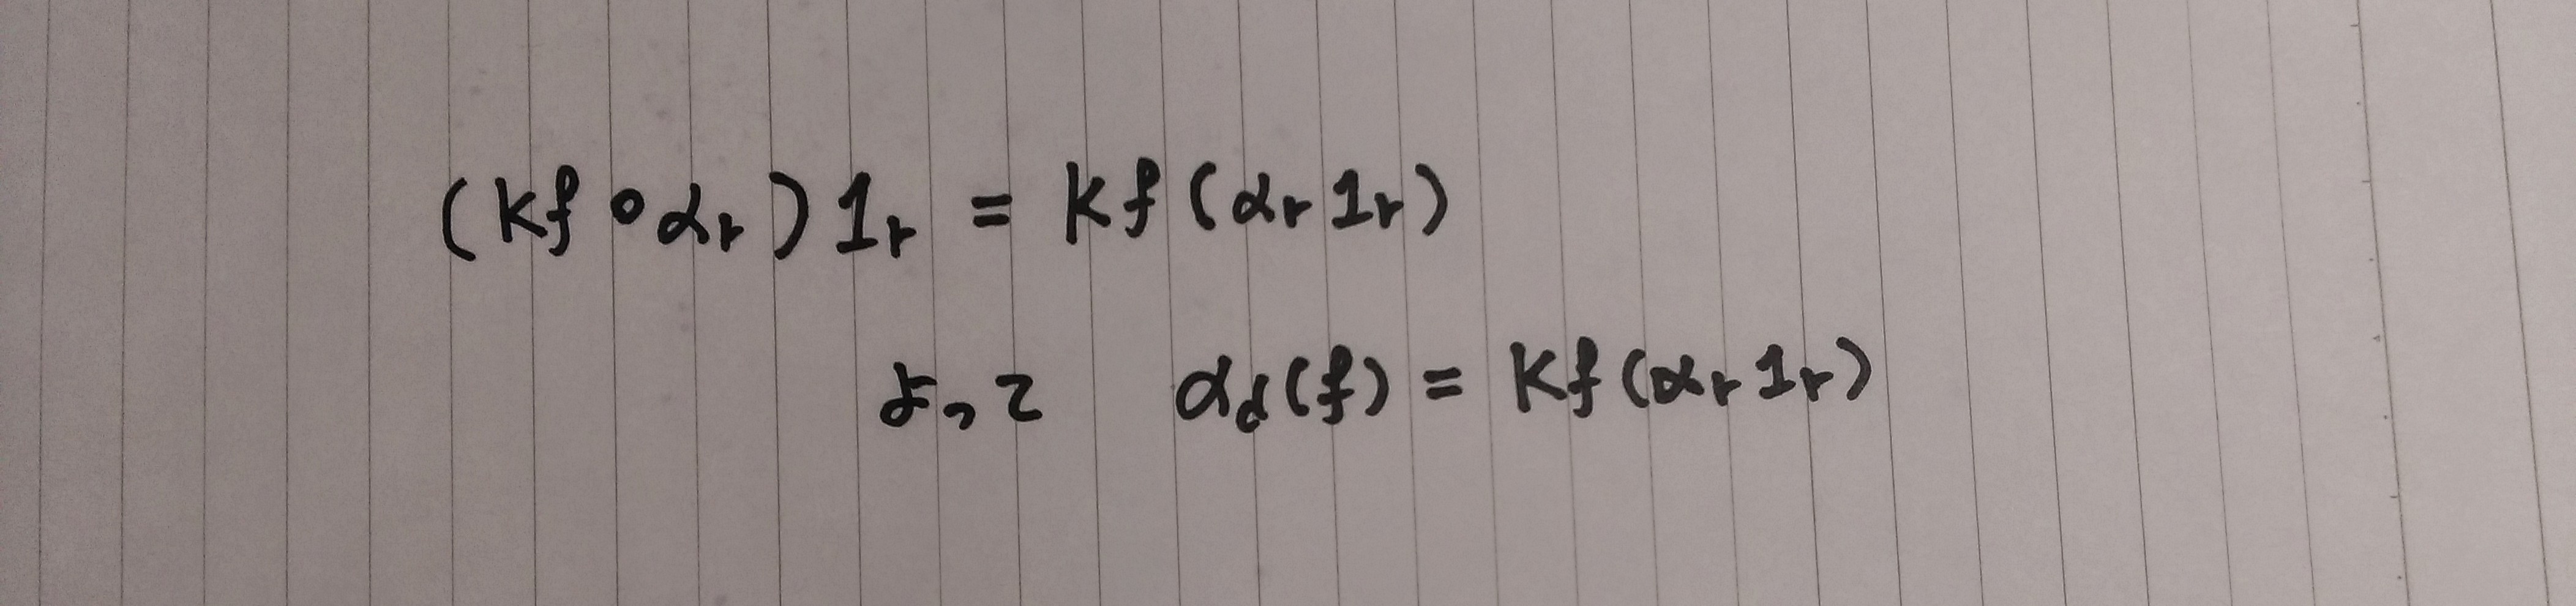 (Kf∘αᵣ)1ᵣ = Kf(αᵣ1ᵣ)
よって α_d(f) = Kf(αᵣ1ᵣ)